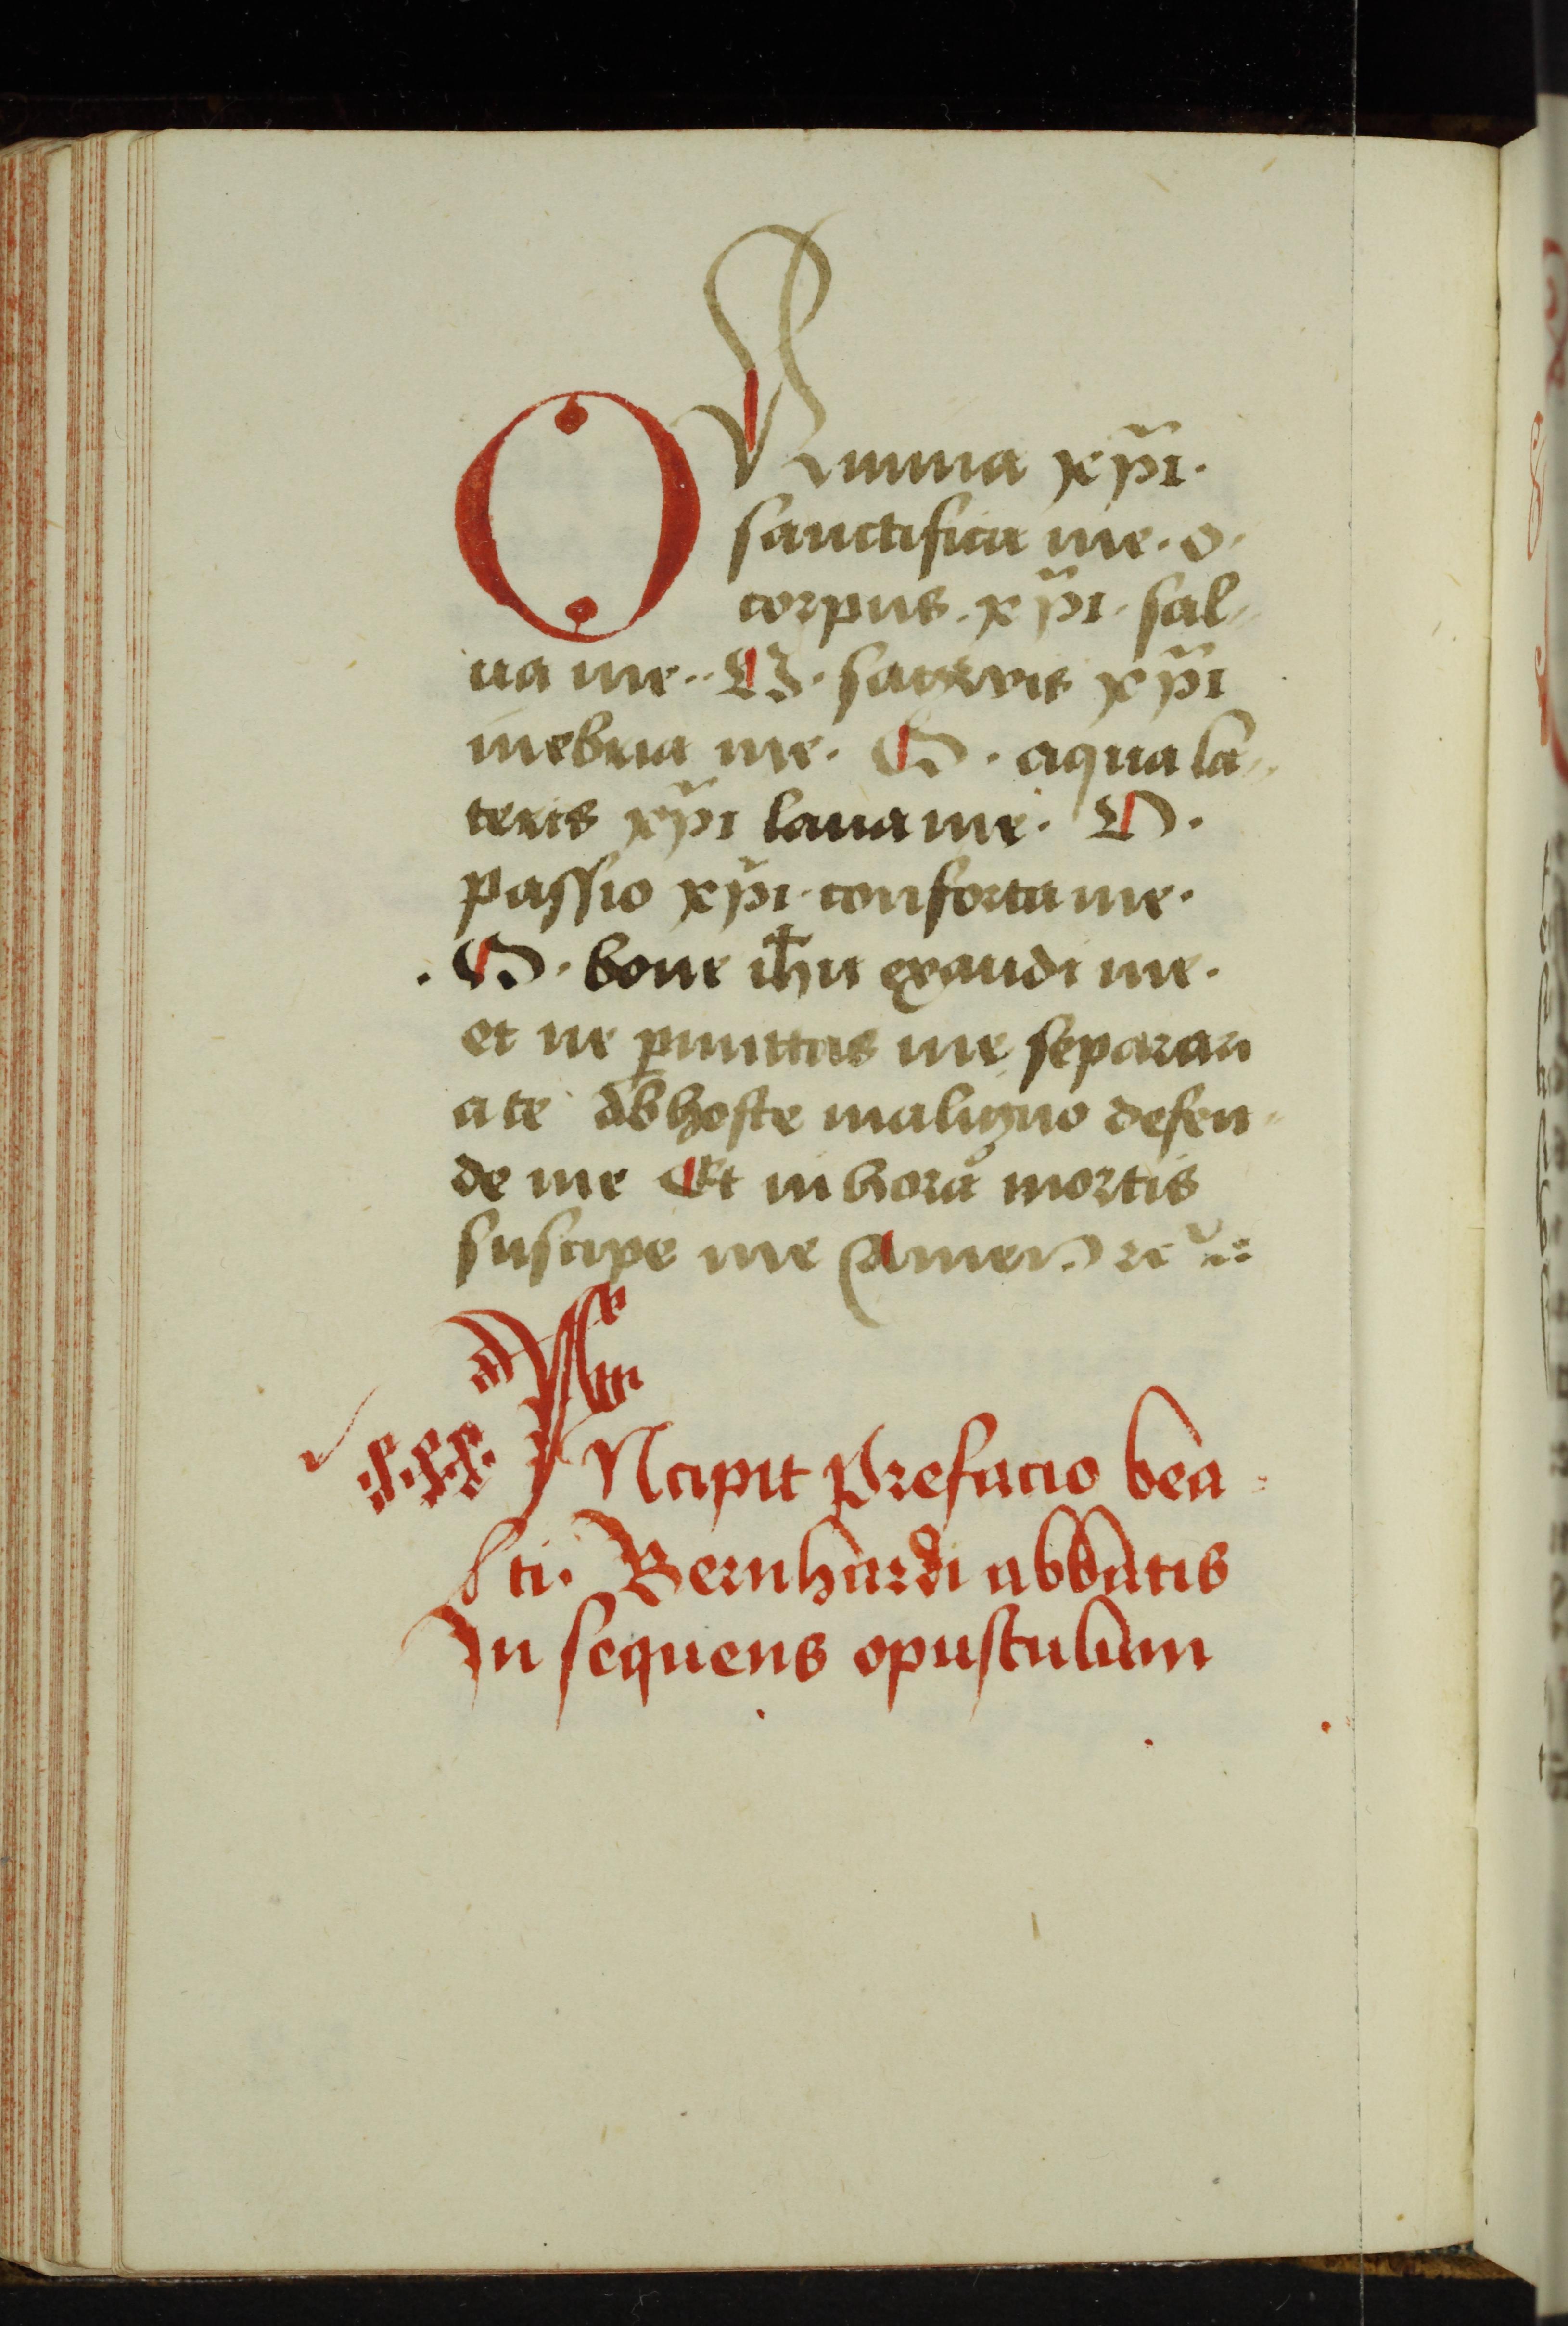 O Anima xp̄i.
sanctifica me. o.
corpus. xp̄i. sal-
ua me. O. sangwis xp̄i
inebria me. O. aqua la-
teris xp̄i laua me. O.
passio xp̄i. conforta me.
. O. bone ih̄u exaudi me.
et ne ꝑmittas me separari
a te ab hoste maligno defen-
de me Et in hora mortis
suscipe me Amen
INcipit Prefacio bea-
ti. Bernhardi abbatis
In sequens opusculum